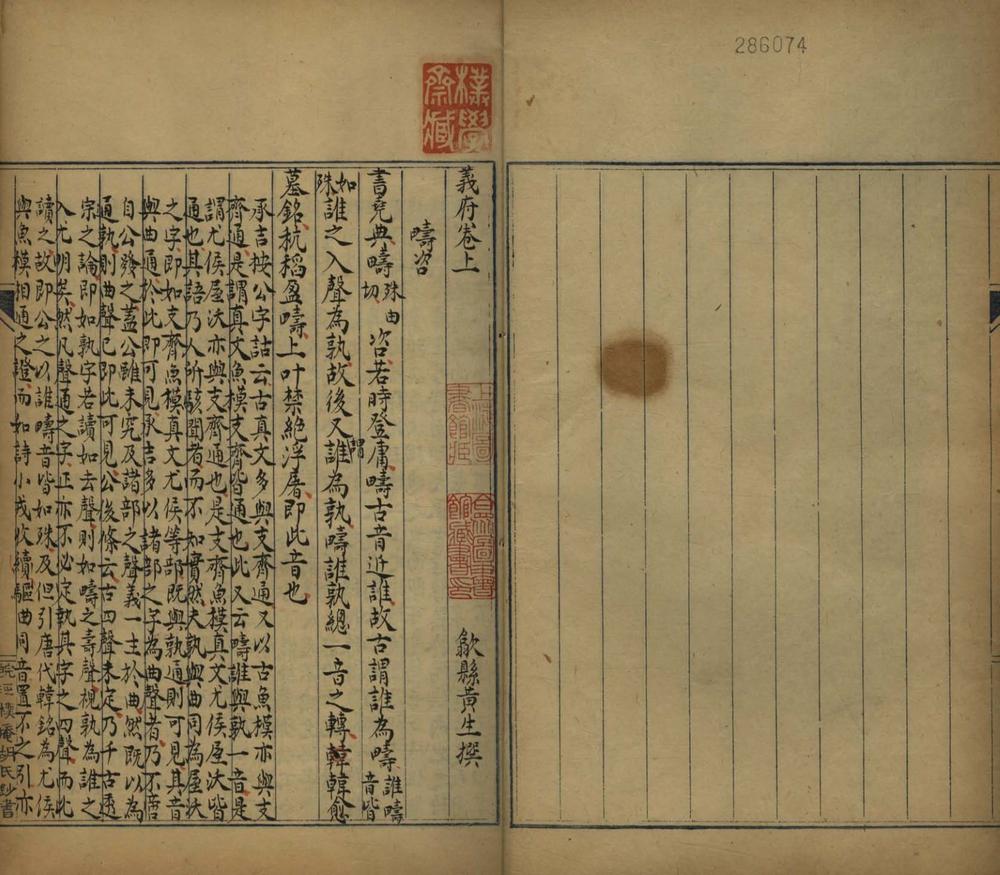 286074
樸學齋藏
義府卷上
歙縣黃生撰
疇咨
書堯典疇殊由切咨若時登庸疇古音近誰故古謂誰為疇誰疇音皆
如殊誰之入聲為孰故後又謂誰為孰疇誰孰總一音之轉韓韓愈
墓銘秔稻盈疇上叶禁絕浮屠即此音也
承吉按公字詁云古真文多與支齊通又以古魚模亦與支
齊通是謂真文魚模支齊皆通也此又云疇誰與孰一音是
謂尤侯屋沃亦與支齊通也是支齊魚模真文尤侯屋沃皆
通也其語乃人所駭聞者而不知實然夫孰與曲同為屋沃
之字即如支齊魚模真文尤侯等部既與孰通則可見其音
與曲通於此即可見承吉多以諸部之字為曲聲者乃不唐
自公發之蓋公雖未究及諸部之聲義一主於曲然既以為
通孰則曲聲已即此可見公後條云古四聲未定乃千古透
宗之論即如孰字若讀如去聲則如疇之壽聲視孰為誰之
入尤明矣然凡聲通之字正亦不必定執其字之四聲而此
讀之故即公之以誰疇音皆如殊及但引唐代韓銘為尤侯
與魚模相通之證而如詩小戎攸續驅曲同音置不之引亦